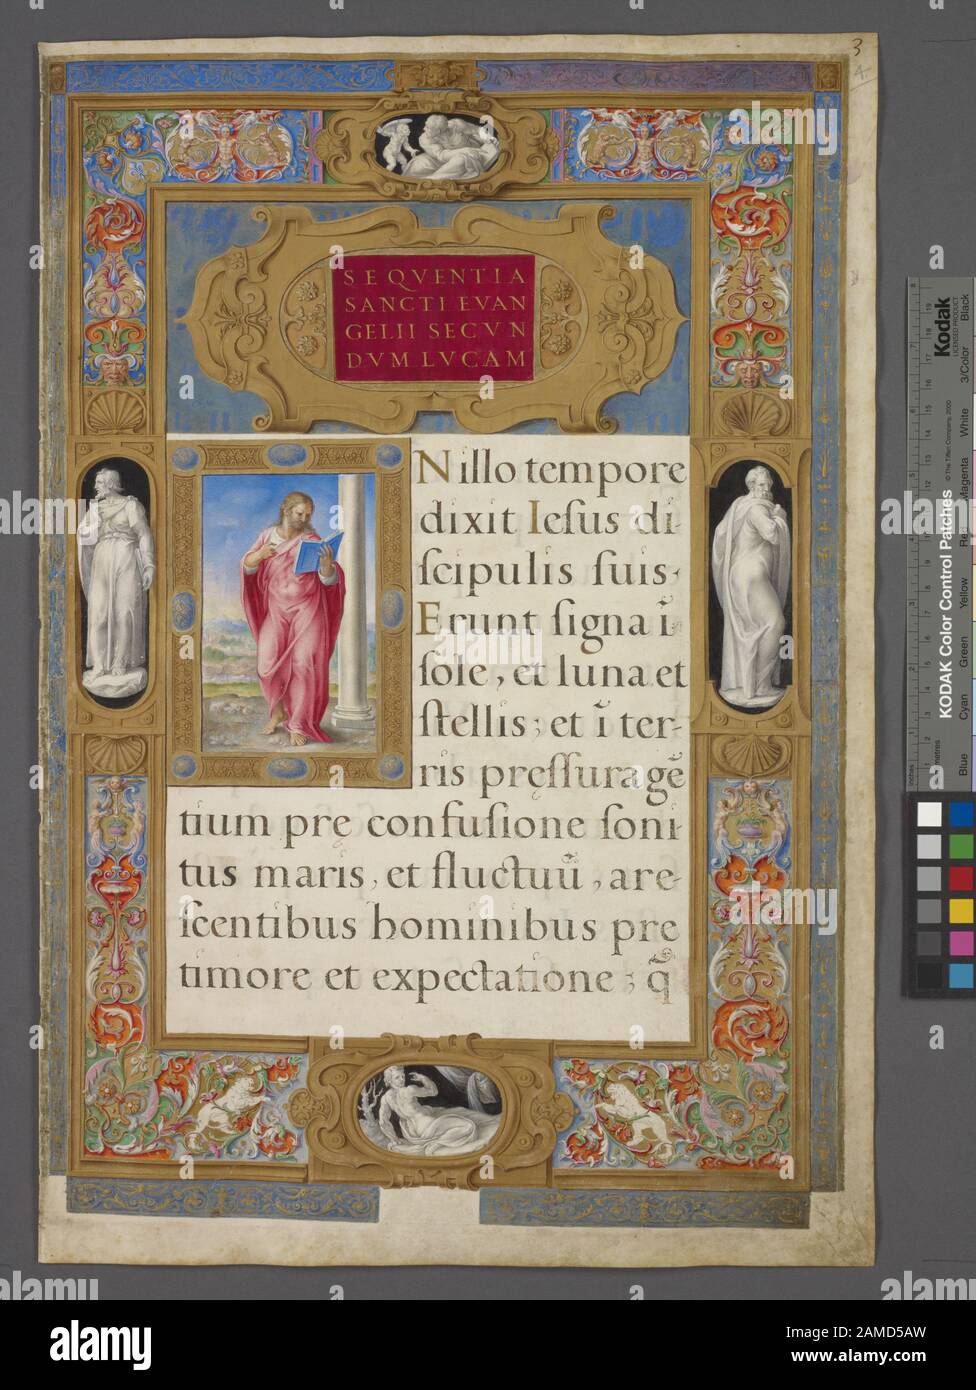 3
4
SEQVENTIA
SANCTI EVAN
GELII SECVN
DVM LVCAM
N illo tempore
dixit Iesus di-
scipulis suis.
Erunt signa ī
sole, et luna et
stellis; et ī ter-
ris pręssura gē
tium prę confusione soni
tus maris, et fluctuū, are-
scentibus hominibus pre
timore et expectatione; q̃
Kodak
LICENSED PRODUCT
KODAK Color Control Patches
© The Tiffen Company, 2000
Blue Cyan Green Yellow Red Magenta White 3/Color Black
alamy
Image ID: 2AMD5AW
www.alamy.com